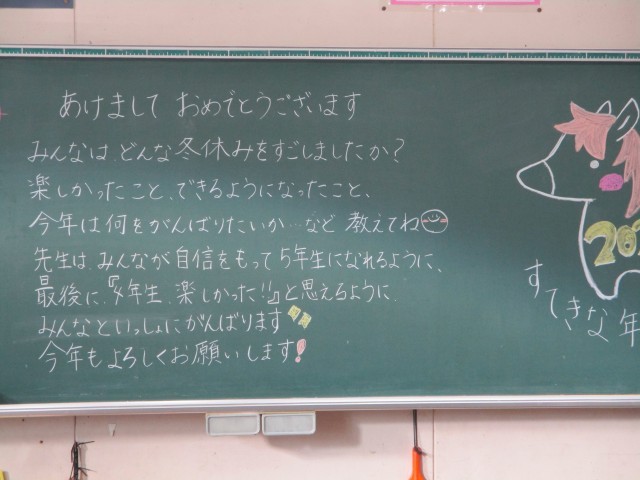 あけまして おめでとうございます
みんなは、どんな冬休みをすごしましたか?
楽しかったこと、できるようになったこと、
今年は何をがんばりたいか…など 教えてね
先生は、みんなが自信をもって5年生になれるように、
最後に、『4年生、楽しかった!!』と思えるように
みんなといっしょにがんばります
今年もよろしくお願いします!
202
すてきな年